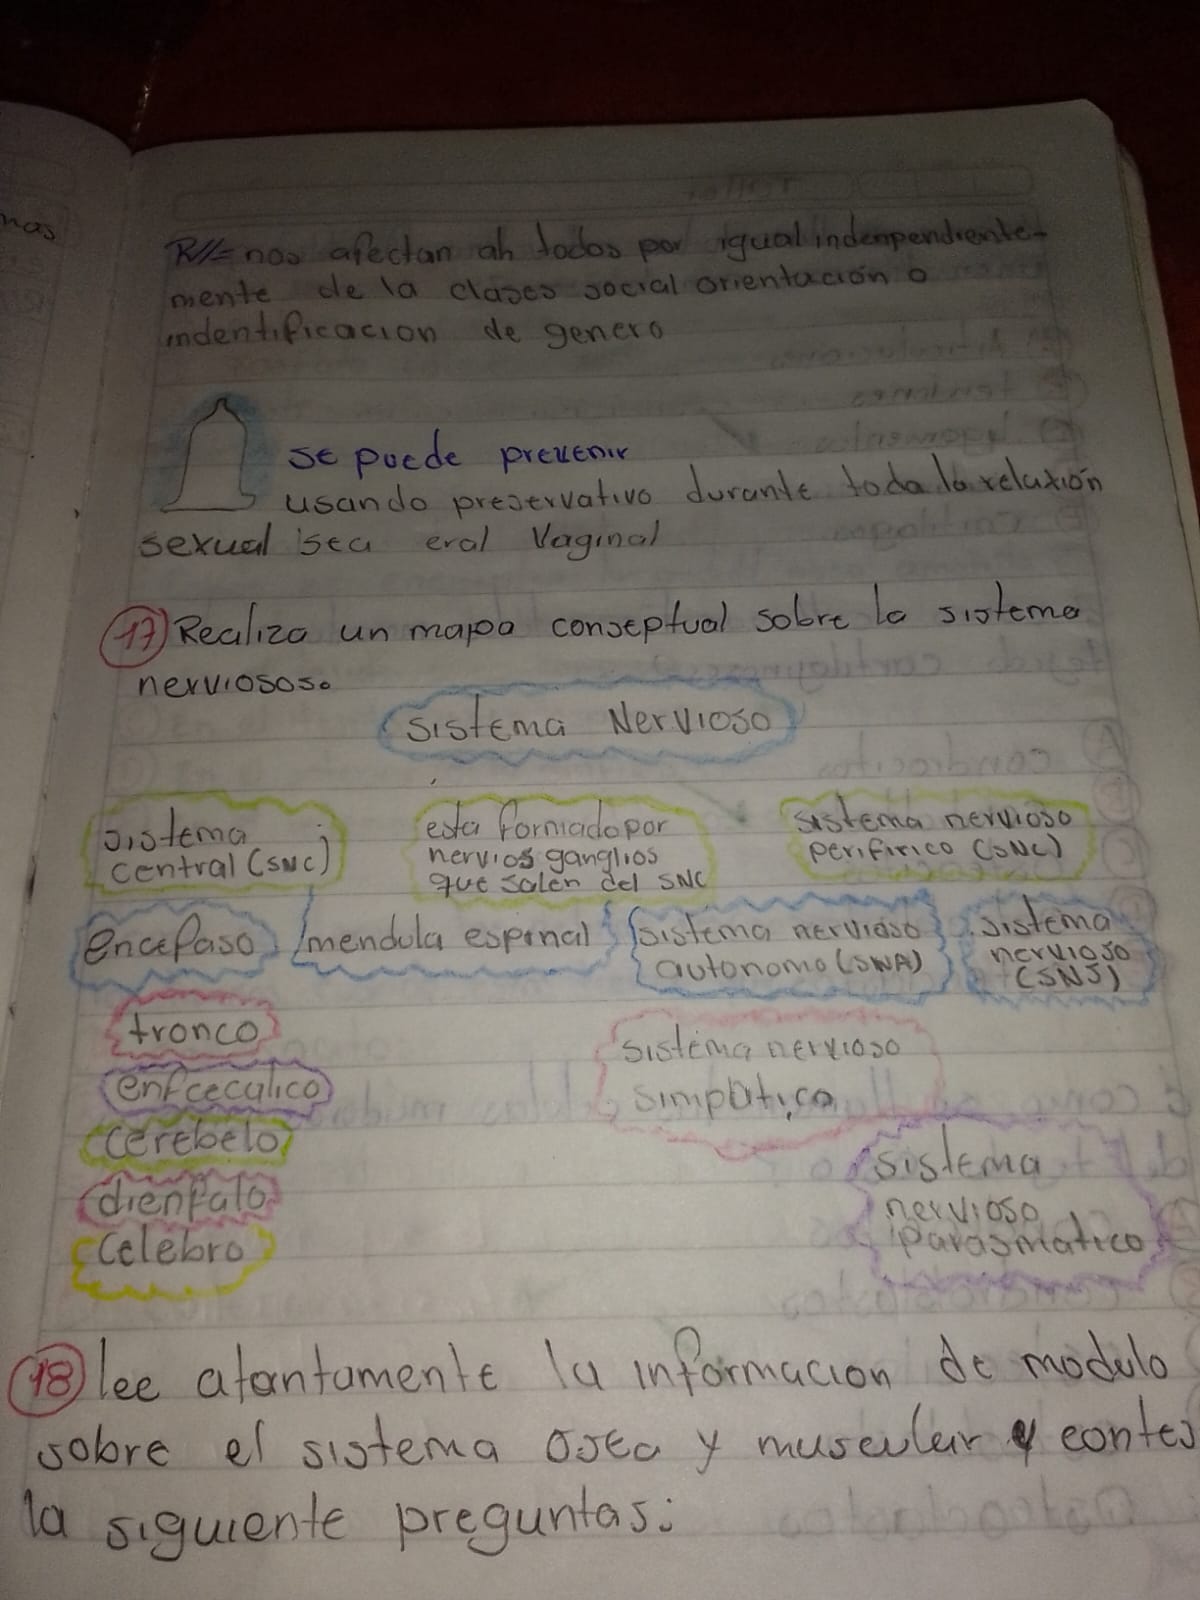 mas
R//= nos afectan ah todos por igual indenpendiente-
mente de la clases social orientación o
indentificacion de genero
se puede prevenir
usando preservativo durante toda la relaxión
sexual sea eral Vaginal
17) Realiza un mapa conseptual sobre la sistema
nerviosos.
Sistema Nervioso
sistema
central (SNC)
esta formado por
nervios ganglios
que salen del SNC
sistema nervioso
perifirico (SNC)
encefaso
mendula espinal
sistema nervioso
autonomo (SNA)
sistema
nervioso
(SNS)
tronco
enfcecalico
cerebelo
dienfalo
Celebro
sistema nervioso
simpático
sistema
nervioso
parasmatico
18) lee atantamente la informacion de modulo
sobre el sistema osea y musculer y contes
la siguiente preguntas: